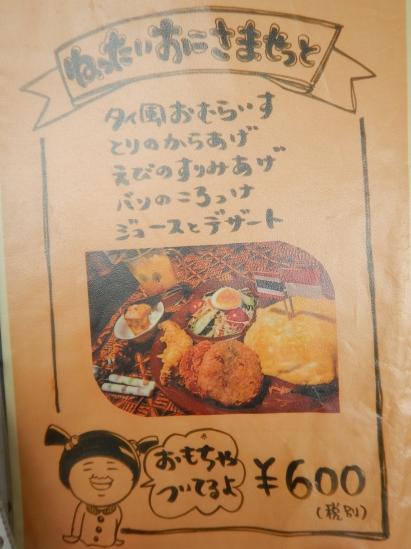 ねったいおこさませっと
タイ風おむらいす
とりのからあげ
えびのすりみあげ
バリのころっけ
ジュースとデザート
おもちゃ
ついてるよ
¥600
(税別)